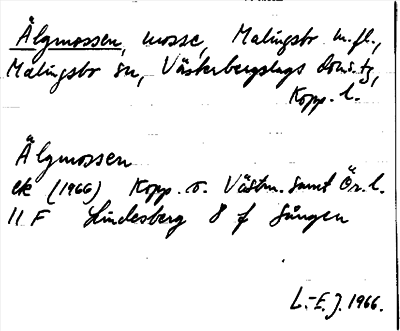 Älgmossen, mosse, Malingsbr m.fl.,
Malingsbr sn, Västerbergslags doms.tg,
Kopp. l.
Älgmossen
ek (1966) Kopp. o. Västm. samt Ör. l.
11 F Lindesberg 8 f Sången
L.-E. J. 1966.